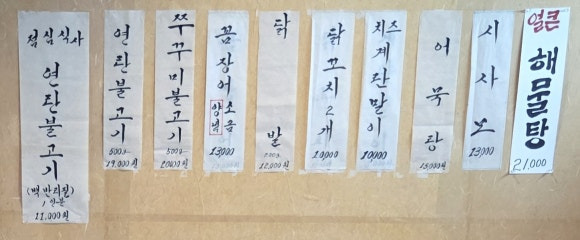 점심식사
연탄불고기
(백반리필)
1인분
11,000원
연탄불고기
500g
19,000원
쭈꾸미불고기
500g
20000원
꼼장어
양념
소금
13,000
닭발
12,000원
닭꼬치2개
10,000
치즈
계란말이
10,000
어묵탕
15,000원
시사모
13,000
얼큰
해물탕
21,000